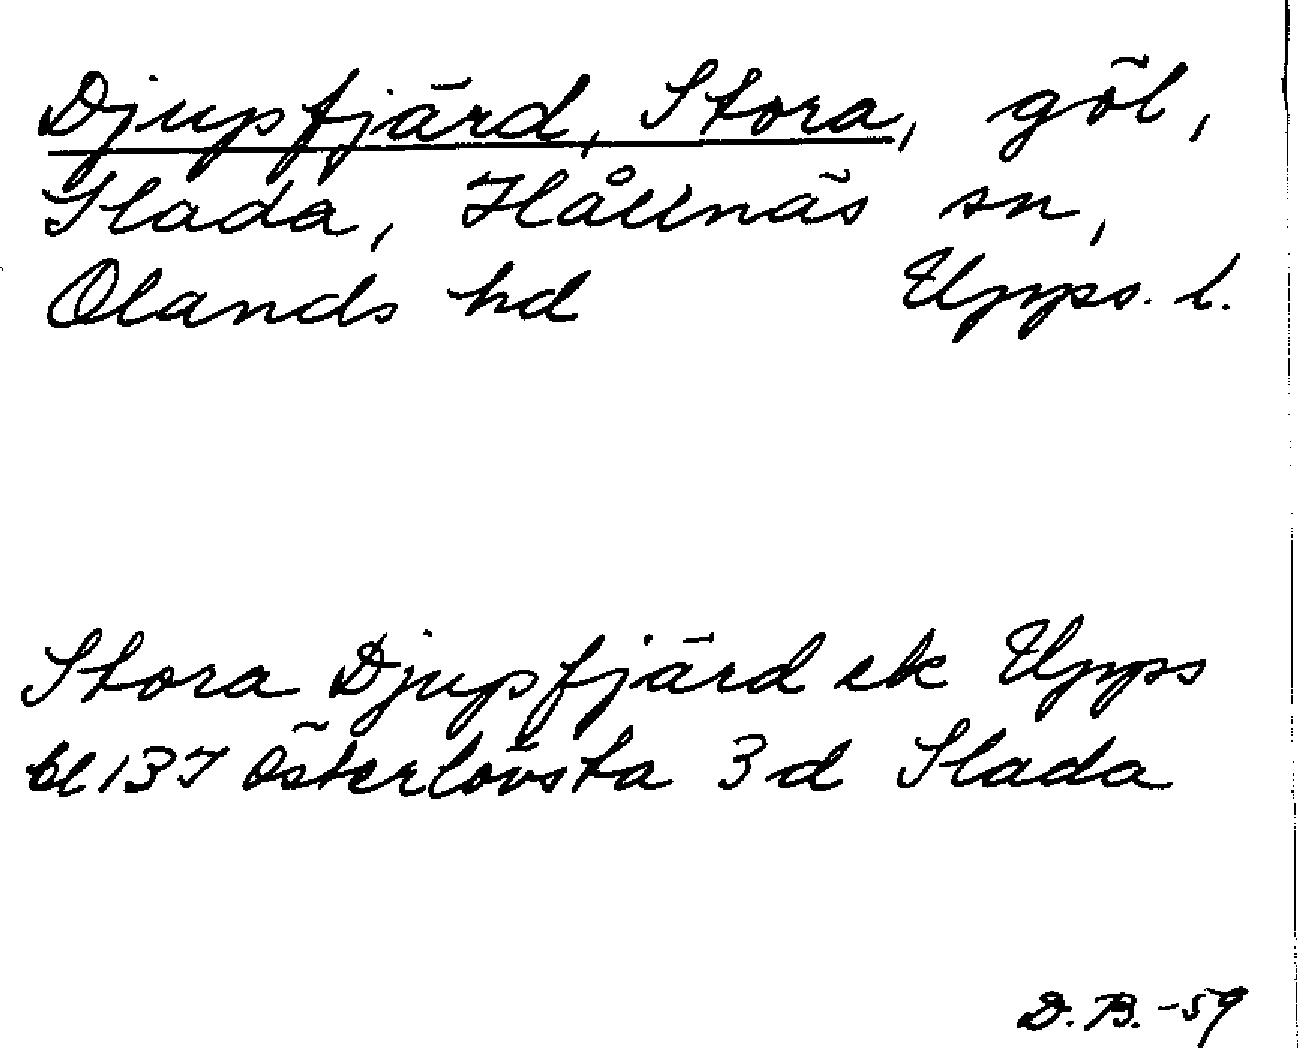 Djupfjärd, Stora, göl,
Slada, Hållnäs sn,
Olands hd Upps. l.
Stora Djupfjärd ek Upps
bl 137 Österlövsta 3d Slada
D. B. -59